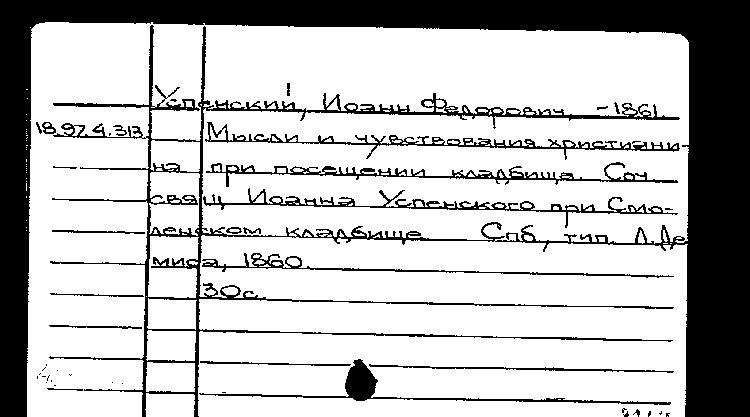 Успенский, Иоанн Федорович, -1861.
18.97.4.313. Мысли и чувствования христиани-
на при посещении кладбища. Соч.
свящ. Иоанна Успенского при Смо-
ленском кладбище Спб, тип. Л. Де
миса, 1860.
30с.